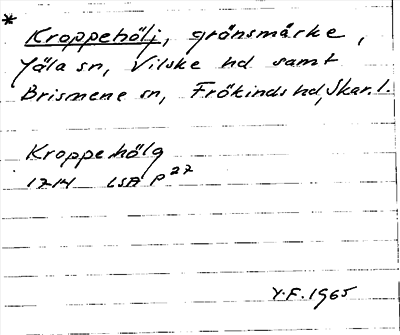 *
Kroppehölj, gränsmärke,
Jäla sn, Vilske hd samt
Brismene sn, Frökinds hd, Skar. l.
Kroppehölg
1714 LSA P 27
Y.F. 1965